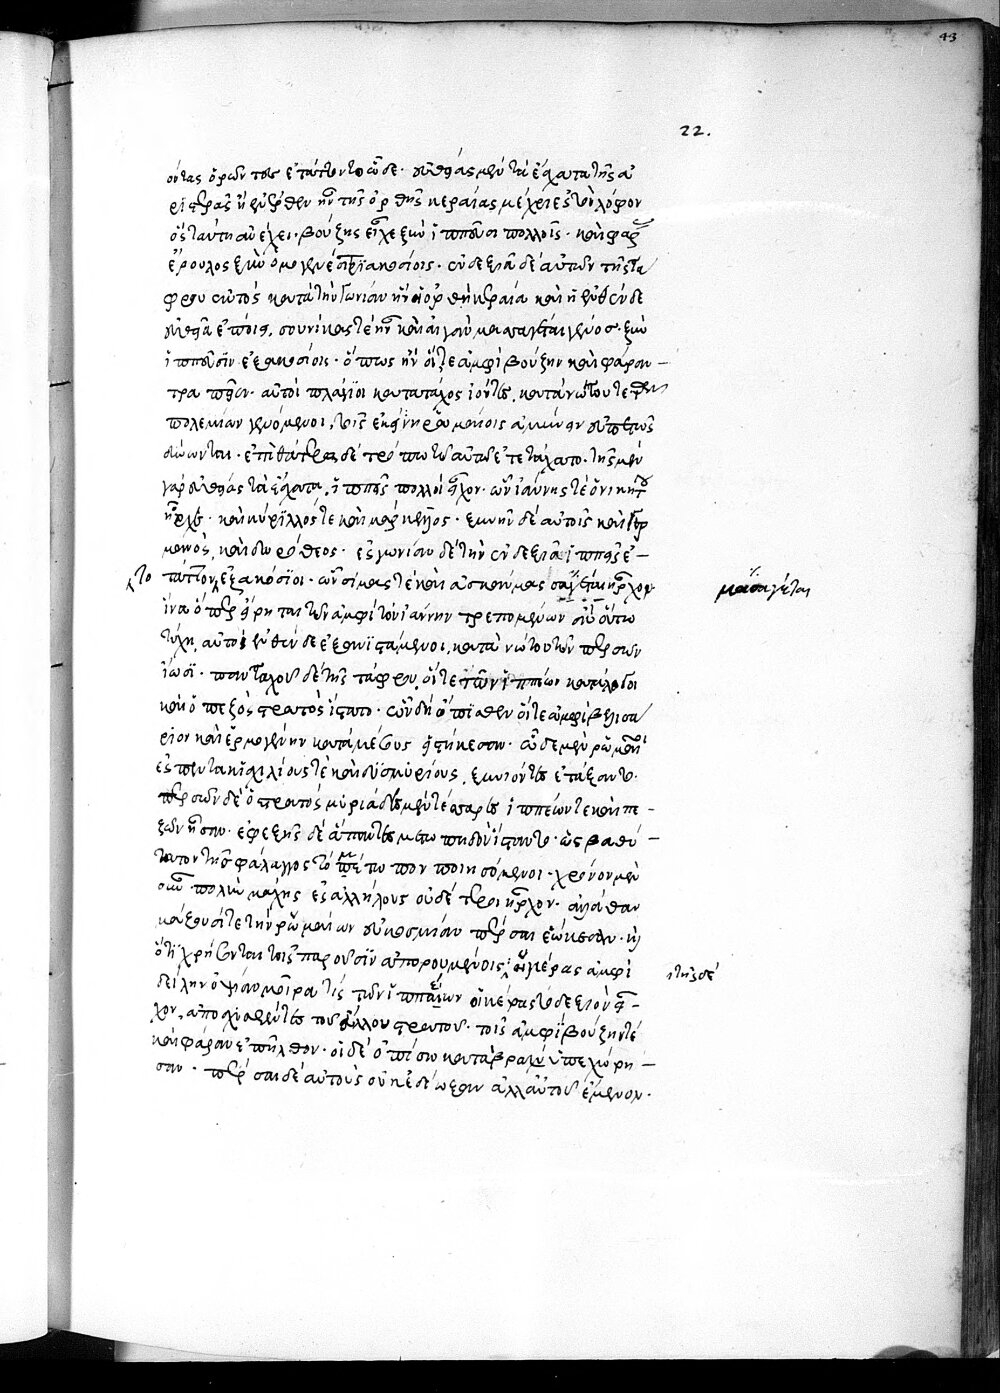 43
22.
όντας ὁρῶντες ἐτάξαντο ὧδε· εὐθείας μὲν τὰ ἔσχατα τῆς ἀ
ριστερᾶς ἣ ἔνερθεν ἦν τῆς ὀρθῆς κεραίας μέχρι ἐς τὸν λόφον
ὃς ταύτῃ ἀνέχει· βούζης εἶχε ξὺν ἱππεῦσι πολλοῖς· καὶ φαρᾶς
ἔρουλος ξὺν ὁμογενέσι τριακοσίοις· ἐν δεξιᾷ δὲ αὐτῶν τῆς τά
φρου ἐκτὸς κατὰ τὴν γωνίαν ἣν ἡ ὀρθὴ κεραία καὶ ἡ ἐνθένδε
εὐθεῖα ἐποίει, σουνίκας τὲ ἦν καὶ αἰγὰν μασσαγέται γένος· ξὺν
ἱππεῦσιν ἑξακοσίοις· ὅπως ἢν οἵ τε ἀμφὶ βούζην καὶ φαρὰν –
τραποῖεν· αὐτοὶ πλάγιοι κατὰ τάχος ἰόντες, κατὰ νώτου τε τῶν
πολεμίων γενόμενοι, τοῖς ἐκείνῃ ῥωμαίοις ἀμύνειν εὐπετῶς
δύωνται· ἐπὶ θάτερα δὲ τρόπῳ τῷ αὐτῷ ἐτετάχατο· τῆς μὲν
γὰρ εὐθείας τὰ ἔσχατα, ἱππεῖς πολλοὶ εἶχον· ὧν ἰωάννης τὲ ὁ νικήτου
ἦρχε· καὶ κύριλλός τε καὶ μάρκελλος· ξυνῆν δὲ αὐτοῖς καὶ γερ
μανὸς, καὶ δωρόθεος· ἐς γωνίαν δὲ τὴν ἐν δεξιᾷ ἱππεῖς ἐ –
το τάττοντο ἑξακόσιοι· ὧν σίμας τὲ καὶ ἀσκὰν μασσαγέται ἦρχον μασαγέται
ἵνα ὅπερ εἴρηται τῶν ἀμφὶ τὸν ἰωάννην τρεπομένων ἢν οὕτω
τύχῃ, αὐτοὶ ἐνθένδε ἐξανιστάμενοι, κατὰ νώτου τῶν περσῶν
ἴωσι· πανταχοῦ δὲ τῆς τάφρου, οἵ τε τῶν ἱππέων κατάλογοι
καὶ ὁ πεζὸς στρατὸς ἵστατο· ὧν δὴ ὄπισθεν οἵ τε ἀμφὶ βελισά
ριον καὶ ἑρμογένην κατὰ μέσους εἱστήκεσαν· ὧδε μὲν ῥωμαῖοι
ἐς πεντακισχιλίους τὲ καὶ δισμυρίους ξυνιόντες ἐτάξαντο·
περσῶν δὲ ὁ στρατὸς μυριάδες μὲν τέσσαρες ἱππέων τὲ καὶ πε –
ζῶν ἦσαν· ἐφεξῆς δὲ ἅπαντες μετωπηδὸν ἵσταντο· ὡς βαθύ –
τατον τῆς φάλαγγος τὸ μέτωπον ποιησόμενοι· χρόνον μὲν
οὖν πολὺν μάχης ἐς ἀλλήλους οὐδέτεροι ἦρχον· ἀλλὰ θαυ
μάζουσί τε τὴν ῥωμαίων εὐκοσμίαν πέρσαι ἐῴκεσαν· καὶ
ὅ τι χρήσονται τοῖς παροῦσιν ἀπορουμένοις· ἀμφὶ τῆς δὲ
δείλην ὀψίαν μοῖρά τις τῶν ἱππέων οἳ κέρας τὸ δεξιὸν εἶ –
χον, ἀποσχισθέντες τοῦ ἄλλου στρατοῦ· τοῖς ἀμφὶ βούζην τὲ
καὶ φαρὰν ἐπῆλθον· οἱ δὲ ὀπίσω κατὰ βραχὺ ὑπεχώρη –
σαν· πέρσαι δὲ αὐτοὺς οὐκ ἐδίωξαν ἀλλ' αὐτοῦ ἔμενον.